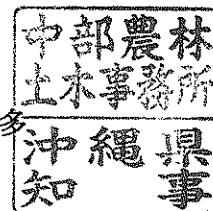 中部農林
土木事務所
多
沖縄県
知事